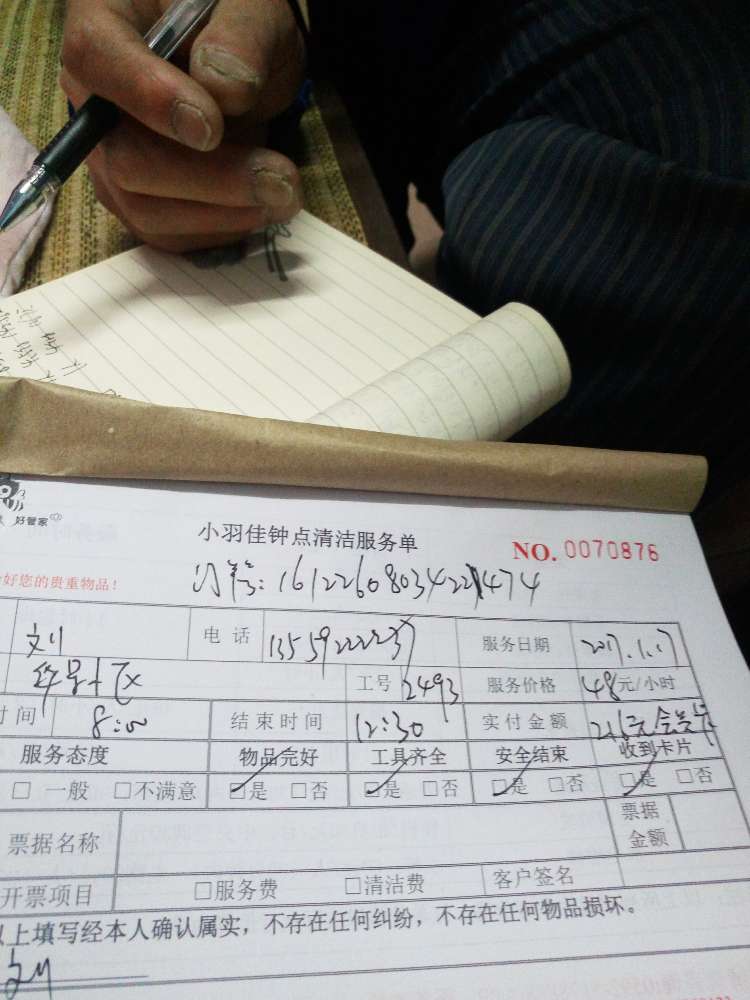 好管家
小羽佳钟点清洁服务单
NO. 0070876
好您的贵重物品!
订单: 1612260803422474
刘 电话 13559222237 服务日期 2017.1.17
工号 2493 服务价格 48元/小时
时间 8:00 结束时间 12:30 实付金额 216元会员卡
服务态度 物品完好 工具齐全 安全结束 收到卡片
□ 一般 □不满意 □是 □否 □是 □否 □是 □否 □是 □否
票据名称 票据金额
开票项目 □服务费 □清洁费 客户签名
以上填写经本人确认属实，不存在任何纠纷，不存在任何物品损坏。
刘